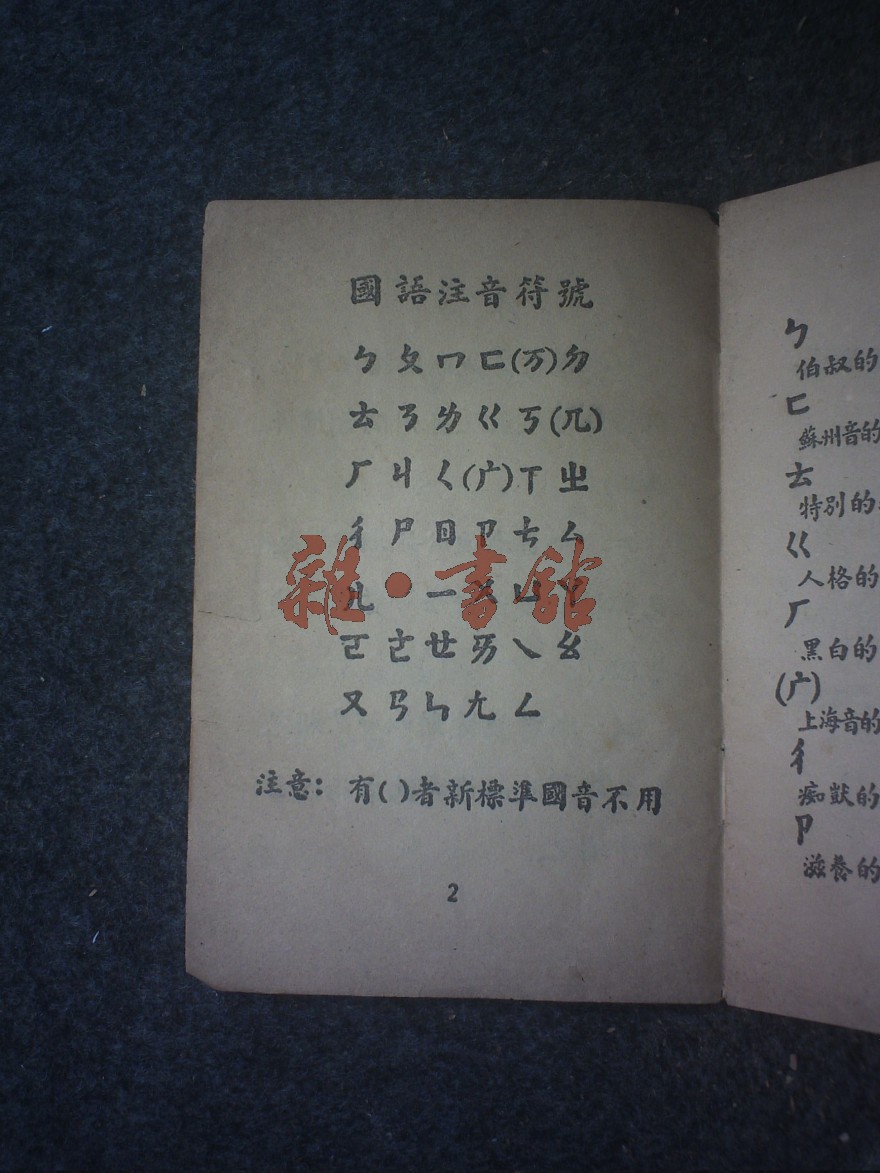 國語注音符號
ㄅ ㄆ ㄇ ㄈ (ㄪ) ㄉ
ㄊ ㄋ ㄌ ㄍ ㄎ (ㄫ)
ㄏ ㄐ ㄑ (ㄬ) ㄒ ㄓ
ㄔ ㄕ ㄖ ㄗ ㄘ ㄙ
ㄦ 一 ㄨ ㄩ ㄚ
ㄛ ㄜ ㄝ ㄞ ㄟ ㄠ
ㄡ ㄢ ㄣ ㄤ ㄥ
注意：有( )者新標準國音不用
2
雜·書館
ㄅ
伯叔的
ㄈ
蘇州音的
ㄊ
特別的
ㄍ
人格的
ㄏ
黑白的
(ㄬ)
上海音的
ㄔ
痴獃的
ㄗ
滋養的